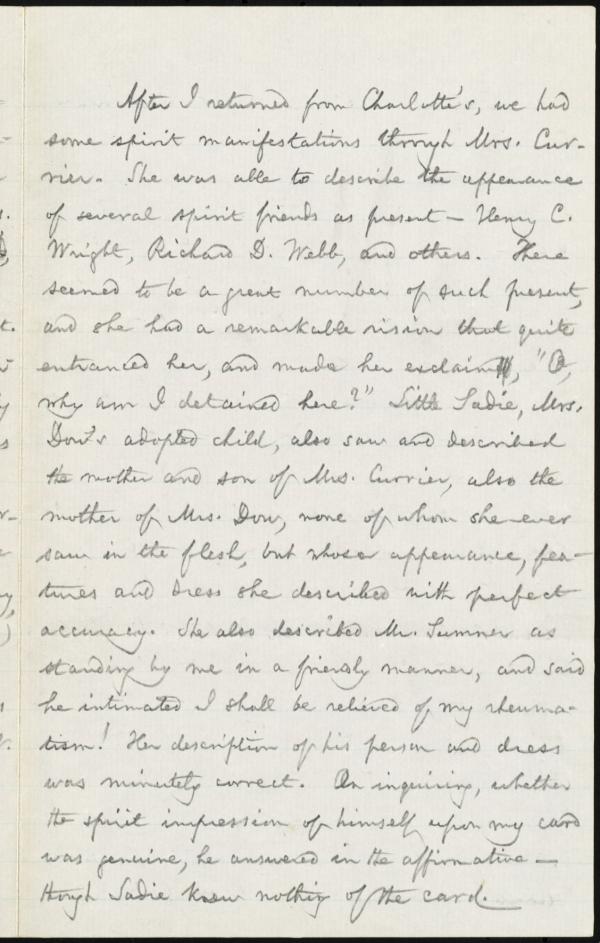 After I returned from Charlotte's, we had
some spirit manifestations through Mrs. Cur-
rier. She was able to describe the appearance
of several spirit friends as present — Henry C.
Wright, Richard D. Webb, and others. There
seemed to be a great number of such present,
and she had a remarkable vision that quite
entranced her, and made her exclaim, "O,
why am I detained here?" Little Sadie, Mrs.
Dow's adopted child, also saw and described
the mother and son of Mrs. Currier, also the
mother of Mrs. Dow, none of whom she ever
saw in the flesh, but whose appearance, fea-
tures and dress she described with perfect
accuracy. She also described Mr. Sumner as
standing by me in a friendly manner, and said
he intimated I shall be relieved of my rheuma-
tism! Her description of his person and dress
was minutely correct. On inquiring, whether
the spirit impression of himself upon my card
was genuine, he answered in the affirmative —
though Sadie knew nothing of the card.